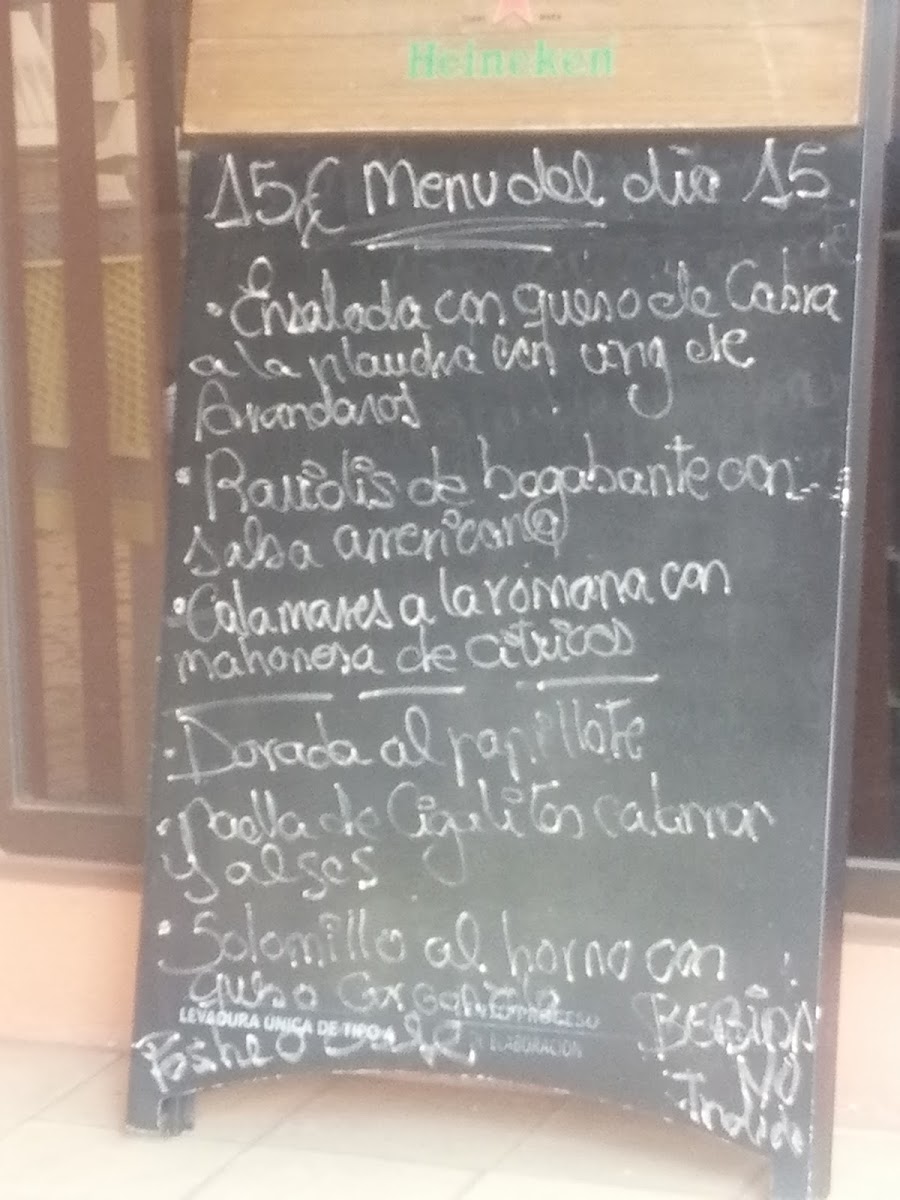 Heineken
15€ Menu del dia 15
· Ensalada con queso de Cabra
a la plancha con ving de
Arandanos
· Raviolis de bogabante con
salsa american@
· Calamares a la romana con
mahonesa de citricos
· Dorada al papillote
· Paella de Cigalitas calamar
y alges
· Solomillo al horno con
queso
LEVADURA ÚNICA DE TIPO A
PROCESO
DE ELABORACIÓN
BEBIDAS
NO